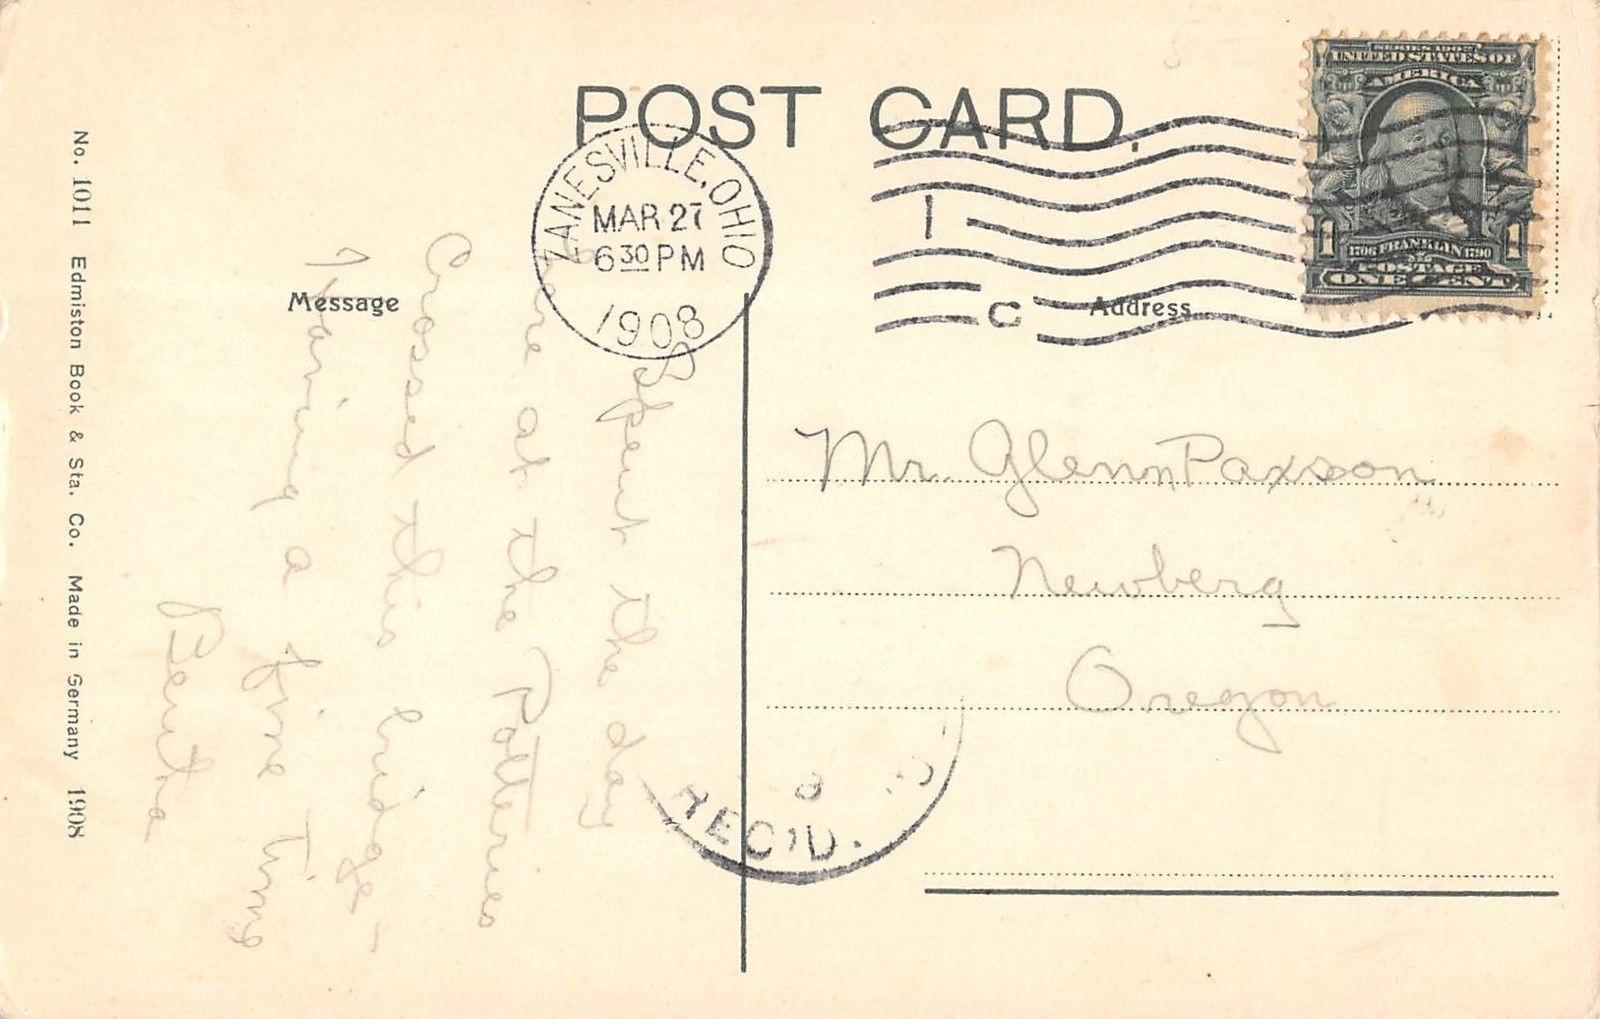 POST CARD.
ZANESVILLE, OHIO
MAR 27
6 30 PM
1908
1
C
SERIES 1902
UNITED STATES OF
AMERICA
1 1
1706 FRANKLIN 1790
POSTAGE
ONE CENT
Message
Address
Spent the day
here at the Potteries
Crossed this bridge -
Having a fine time
Bertha
Mr. Glenn Paxson
Newberg
Oregon
REC'D.
No. 1011 Edmiston Book & Sta. Co. Made in Germany 1908